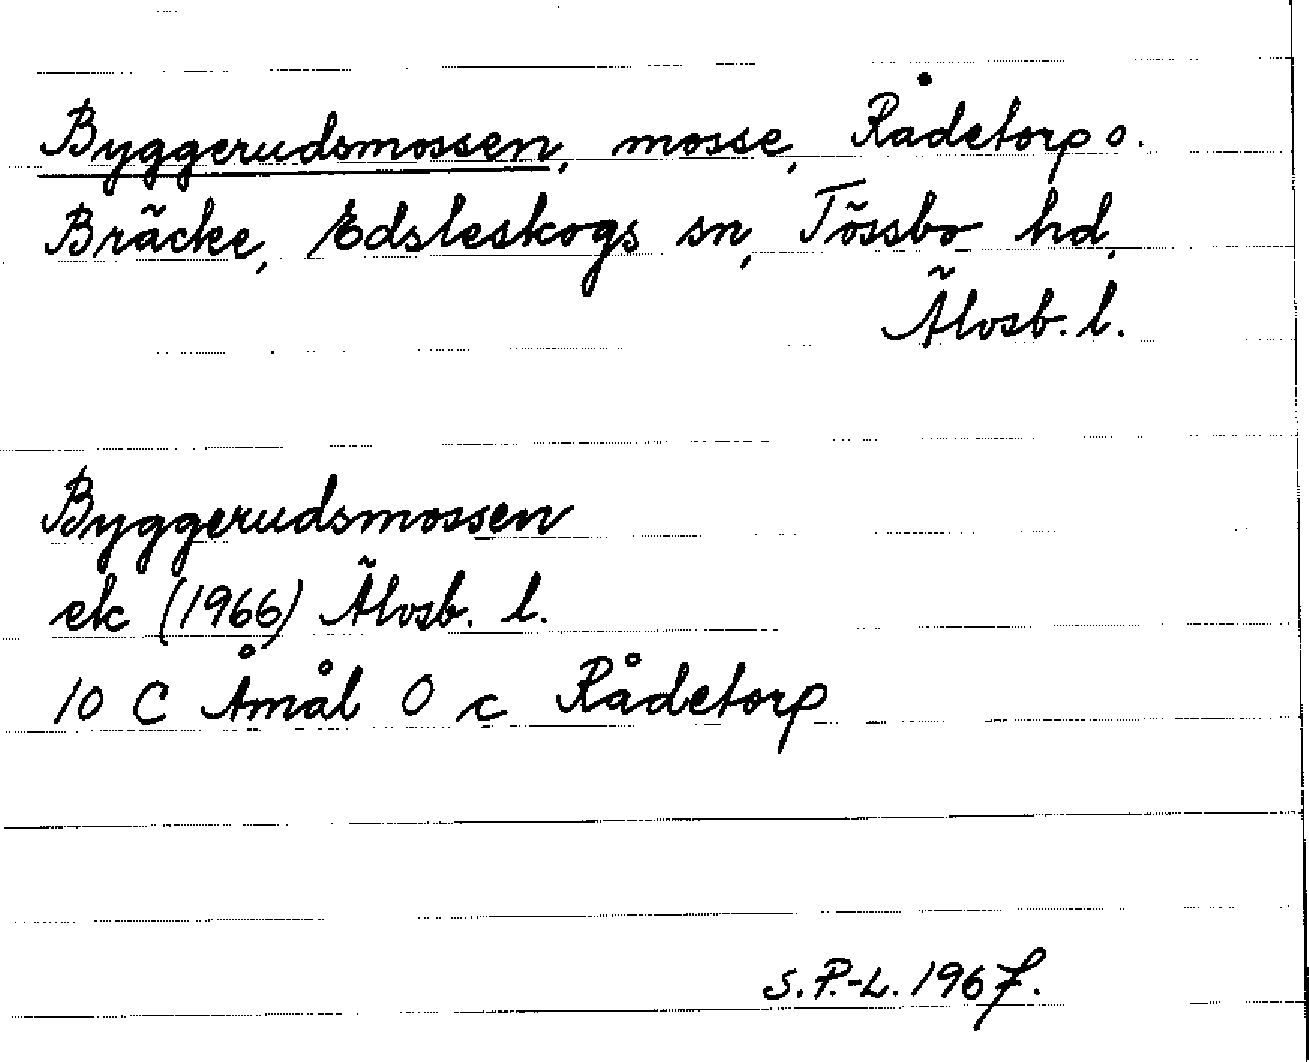 Byggerudsmossen, mosse, Rådetorp o.
Bräcke, Edsleskogs sn, Tössbo hd,
Älvsb. l.
Byggerudsmossen
ek (1966) Älvsb. l.
10 C Åmål O c Rådetorp
S.P.-L. 1967.